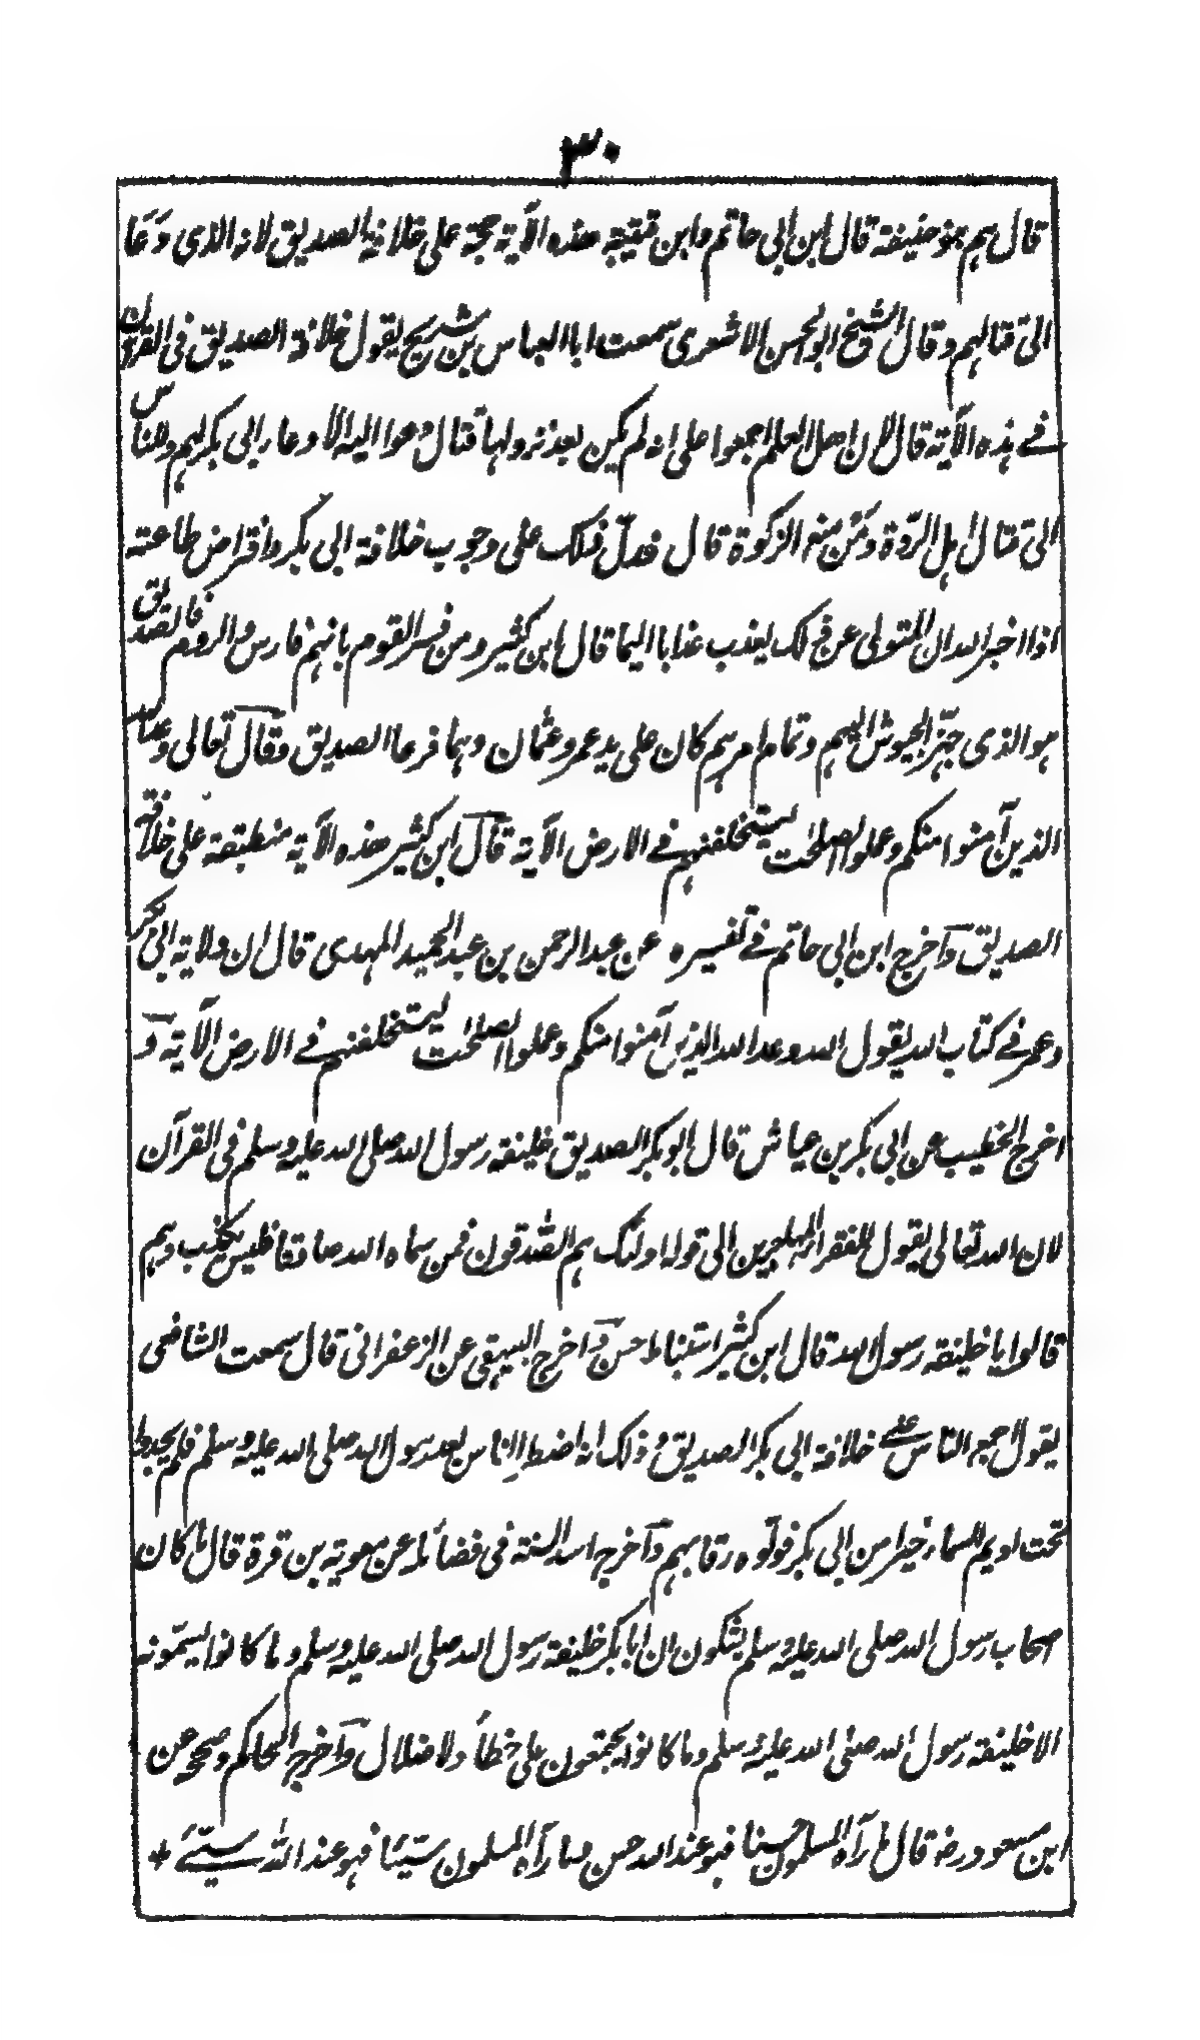 ٣٠
قال ہم بنو حنیفۃ قال ابن ابی حاتم وابن قتیبۃ ھذہ الآیۃ حجۃ علی خلافۃ الصدیق لانہ الذی دَعَا
الی قتالہم وقال الشیخ ابو الحسن الاشعری سمعت ابا العباس بن شریح یقول خلافۃ الصدیق فی القرآن
فے ہذہ الآیۃ قال لان اھل العلم اجمعوا علی انہ لم یکن بعد نزولہا قتال دعوا الیہ الا دعاء ابی بکر لہم وللناس
الی قتال اہل الردۃ ومَن منع الزکوۃ قال فدلّ ذلک علی وجوب خلافۃ ابی بکر وافتراض طاعتہ
اذا اخبر اللہ ان المتولی عن ذلک یعذب عذابا الیما قال ابن کثیر ومن فسر القوم بانہم فارس والروم فالصدیق
ہو الذی جہّز الجیوش الیہم وتمام امرہم کان علی ید عمر وعثمان وہما فرعا الصدیق وقال تعالی وعد اللہ
الذین آمنوا منکم وعملوا الصلحٰت لیستخلفنہم فے الارض الآیۃ قال ابن کثیر ھذہ الآیۃ منطبقۃ علی خلافۃ
الصدیق واخرج ابن ابی حاتم فے تفسیرہ عن عبد الرحمن بن عبد الحمید المہدی قال ان ولایۃ ابی بکر
وعمر فے کتاب اللہ یقول اللہ وعد اللہ الذین آمنوا منکم وعملوا الصلحٰت لیستخلفنہم فے الارض الآیۃ و
اخرج الخطیب عن ابی بکر بن عیاش قال ابو بکر الصدیق خلیفۃ رسول اللہ صلی اللہ علیہ وسلم فی القرآن
لان اللہ تعالی یقول للفقراء المہاجرین الی قولہ اولئک ہم الصّدقون فمن سماہ اللہ صادقا فلیس یکذب وہم
قالوا یا خلیفۃ رسول اللہ قال ابن کثیر استنباط حسن واخرج البیہقی عن الزعفرانی قال سمعت الشافعی
یقول اجمع الناس علی خلافۃ ابی بکر الصدیق وذلک انہ اضطر الناس بعد رسول اللہ صلی اللہ علیہ وسلم فلم یجدوا
تحت ادیم السماء خیرا من ابی بکر فولّوہ رقابہم واخرج اسد السنۃ فی فضائلہ عن معویۃ بن قرۃ قال ما کان
اصحاب رسول اللہ صلی اللہ علیہ وسلم یشکون ان ابا بکر خلیفۃ رسول اللہ صلی اللہ علیہ وسلم وما کانوا یسمّونہ
الا خلیفۃ رسول اللہ صلی اللہ علیہ وسلم وما کانوا یجتمعون علی خطأ ولا ضلال واخرج الحاکم وصححہ عن
ابن مسعود رضہ قال ما رآہ المسلمون حسنا فہو عند اللہ حسن وما رآہ المسلمون سیّئا فہو عند اللہ سیّئ +